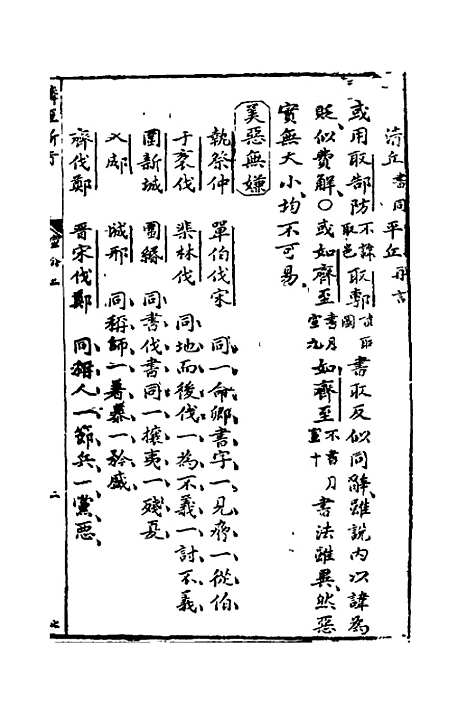 清丘書同平丘再言
或用取郜防不諱取邑取鄟諱取國書取反似同辭雖説内以諱為
貶似費解○或如齊至書月宣九如齊至不書月宣十書法雖異然惡
實無大小均不可易
美惡無嫌
執祭仲 單伯伐宋 同一命卿書字一見脅一從伯
于袤伐 棐林伐 同地而後伐一為不義一討不義
圍新城 圍緡 同書伐書同一攘夷一殘夏
入郕 城邢 同稱師一著暴一矜盛
齊伐鄭 晋宋伐鄭 同稱人一節兵一黨惡
二